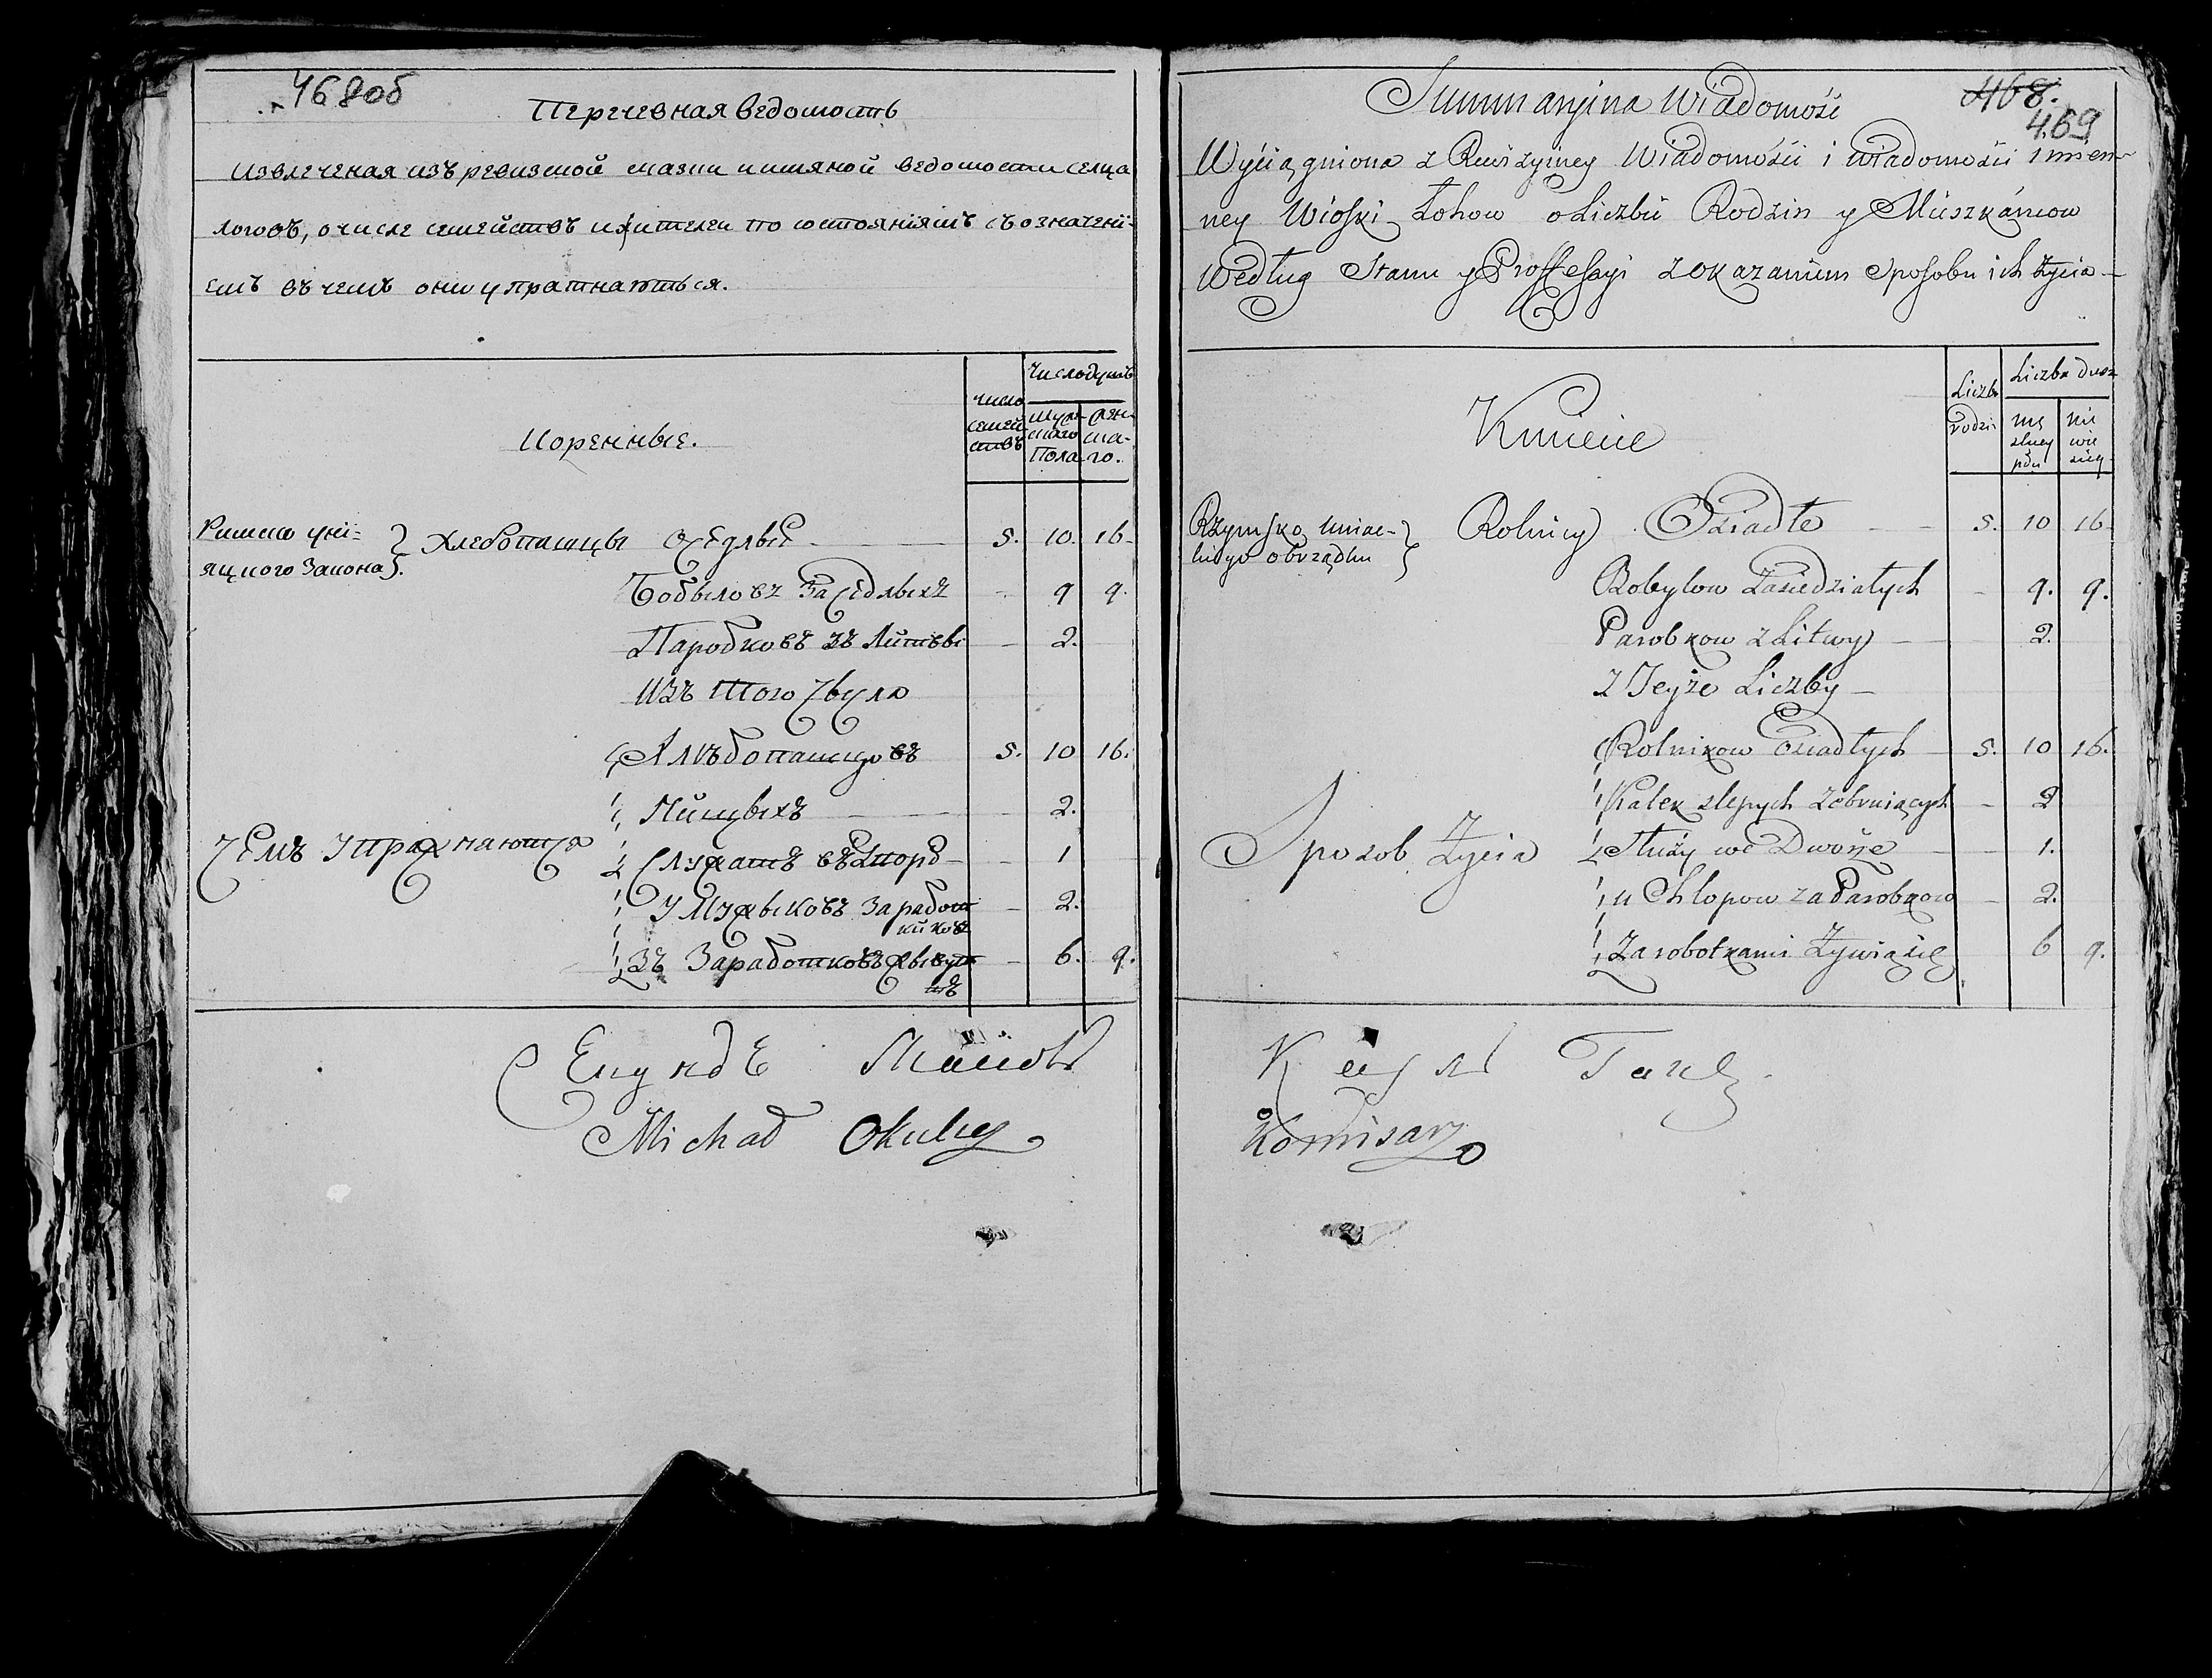 468об
Перечевная ведомость
Извлеченая изъ ревизской сказки и имяной ведомости селца
Логовъ, о числе семействъ и жителей по состояніямъ съ означені-
емъ въ чемъ они упражнаются.
Число душъ
Число
семей-
ствъ
мужес-
каго
Пола
женс-
ка-
го.
Коренные.
Римско уні-
яцкого Закона } Хлебопашцы оседлые 5. 10. 16
Бобыловъ Заседлыхъ - 9 9.
Паробковъ зъ Литвы - 2.
Изъ того числа
Хлѣбопашцовъ 5. 10 16.
Нищыхъ 2.
Чемъ упражнаются
Служатъ въ Дворе - 1
У Мужыковъ Заработ
никовъ - 2.
Зъ Заработковъ жывут
тъ - 6. 9.
Michał Okulicz
468.
469
Summaryina Wiadomość
Wyciągniona z Rewizyiney Wiadomości i Wiadomości imien-
ney Wioski Łohow o Liczbie Rodzin y Mieszkańcow
Według Stanu y Proffessyi z okazaniem sposobu ich życia
Liczba dusz
Liczba
rodzin
mę
zkiey
płci
nie
wie
sciey
Kmiecie
Rzymsko Uniac-
kiego obrządku } Rolnicy Osiadłe 5. 10 16
Bobylow Zasiedziałych - 9. 9.
Parobkow z Litwy 2.
Z Teyże Liczby
Rolnikow Osiadłych 5. 10 16.
Kalek slepych żebruiących - 2
Sposob Życia
Służy we Dworze 1.
u Chłopow za Parobkow - 2.
Zarobotkami Żywią się 6 9.
Komisarz